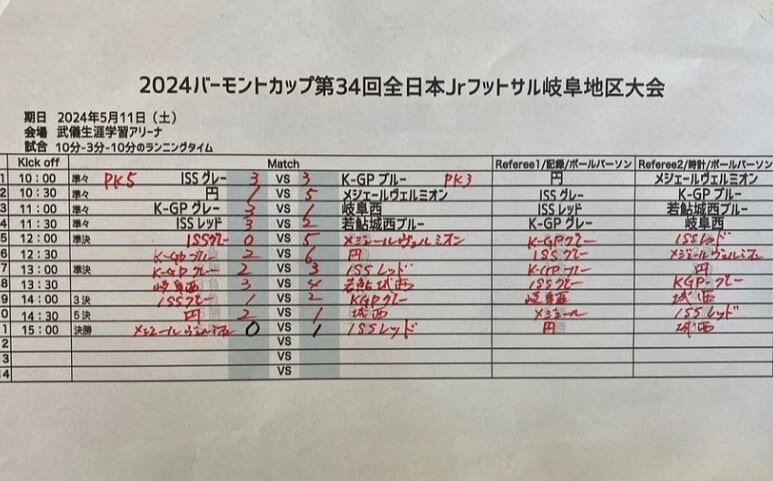 2024バーモントカップ第34回全日本Jrフットサル岐阜地区大会
期日 2024年5月11日（土）
会場 武儀生涯学習アリーナ
試合 10分-3分-10分のランニングタイム
Kick off Match Referee1/記録/ボールパーソン Referee2/時計/ボールパーソン
1 10：00 準々 PK5 ISS グレー 3 VS 3 K-GP ブルー PK3 円 メジェールヴェルミオン
2 10：30 準々 円 1 VS 5 メジェールヴェルミオン ISS グレー K-GP ブルー
3 11：00 準々 K-GP グレー 3 VS 1 岐阜西 ISS レッド 若鮎城西ブルー
4 11：30 準々 ISS レッド 3 VS 2 若鮎城西ブルー K-GP グレー 岐阜西
5 12：00 準決 ISSグレー 0 VS 5 メジェールヴェルミオン K-GPグレー ISSレッド
6 12：30 K-GPブルー 2 VS 6 円 ISSグレー メジェールヴェルミオン
7 13：00 準決 K-GPグレー 2 VS 3 ISSレッド K-GPブルー 円
8 13：30 岐阜西 3 VS 4 若鮎城西 ISSグレー KGPグレー
9 14：00 3決 ISSグレー 1 VS 2 KGPグレー 岐阜西 城西
0 14：30 5決 円 2 VS 1 城西 メジェール ISSレッド
1 15：00 決勝 メジェールヴェルミオン 0 VS 1 ISSレッド 円 城西
2 VS
3 VS
4 VS